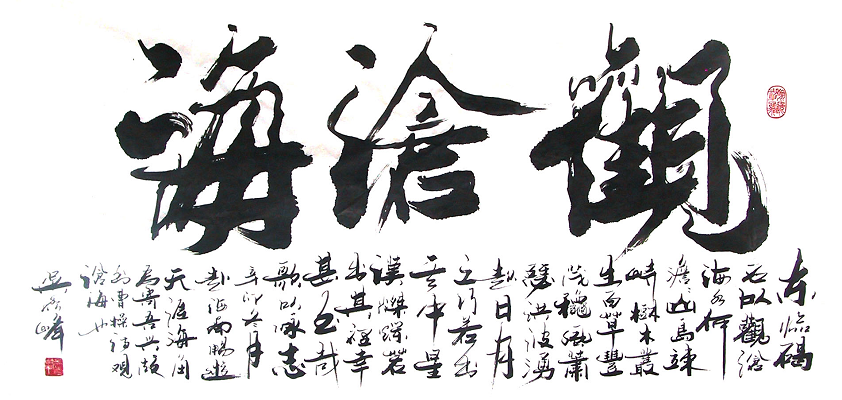 觀滄海
东临碣
石以觀滄
海水何
澹山島竦
峙樹木叢
生百草豐
茂穐風蕭
瑟洪波湧
起日月
之行若出
其中星
漢燦爛若
出其裡幸
甚至哉
歌以咏志
辛卯冬月
赴海南
天涯海角
為寄吾興
曹操诗观
滄海